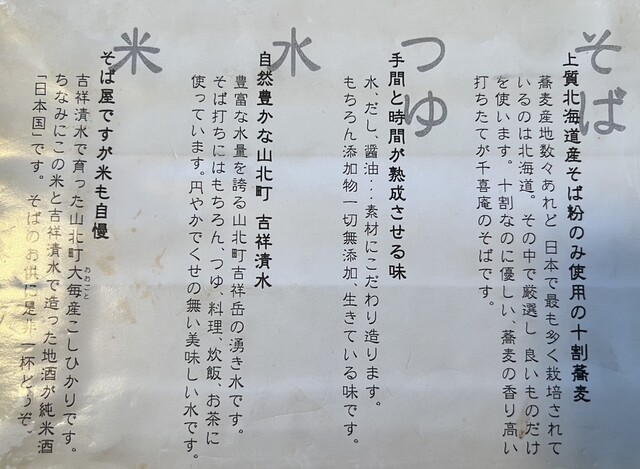 そば
上質北海道産そば粉のみ使用の十割蕎麦
蕎麦産地数々あれど 日本で最も多く栽培されて
いるのは北海道。その中で厳選し 良いものだけ
を使います。十割なのに優しい、蕎麦の香り高い
打ちたてが千喜庵のそばです。
つゆ
手間と時間が熟成させる味
水、だし、醤油…素材にこだわり造ります。
もちろん添加物一切無添加、生きている味です。
水
自然豊かな山北町 吉祥清水
豊富な水量を誇る山北町吉祥岳の湧き水です。
そば打ちにはもちろん、つゆ、料理、炊飯、お茶に
使っています。円やかでくせの無い美味しい水です。
米
そば屋ですが米も自慢
吉祥清水で育った山北町大毎産こしひかりです。
おおごと
ちなみにこの米と吉祥清水で造った地酒が純米酒
「日本国」です。そばのお供に是非一杯どうぞ。